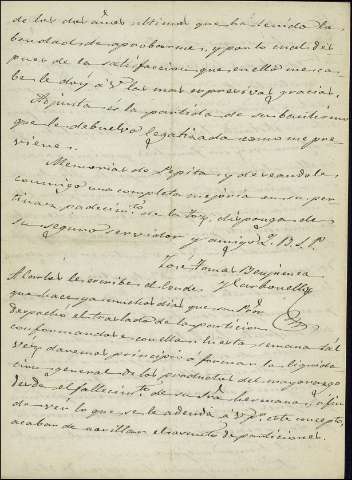 de los dos años ultimos que ha tenido la
bondad de aprobarme, y por lo cual des
pues de la satisfaccion que en ello me ca
be le doy á V. las mas expresivas gracias.
Adjunta és la partida de su bautismo
que le debuelvo legalizada como me pre
viene.
Memorias de Pepita, y deseandole
conmigo una completa mejoria en su per
tinaz padecimto. de la Tos, disponga de
su seguro servidor y amigo Q. B. S. P.
José Tomas
y Carbonell
A Carlos le escribe
que hace ya muchos dias que su Pror.
despachó el traslado de la particion
conformandose con ella: en esta semana tál
vez daremos principio a formar la liquida
cion general de los productos del mayorazgo
desde el fallecimto. de su Sra. hermana, á fin
de vér lo que se le adeuda á V. por este concepto,
acaban de el asunto de particiones.